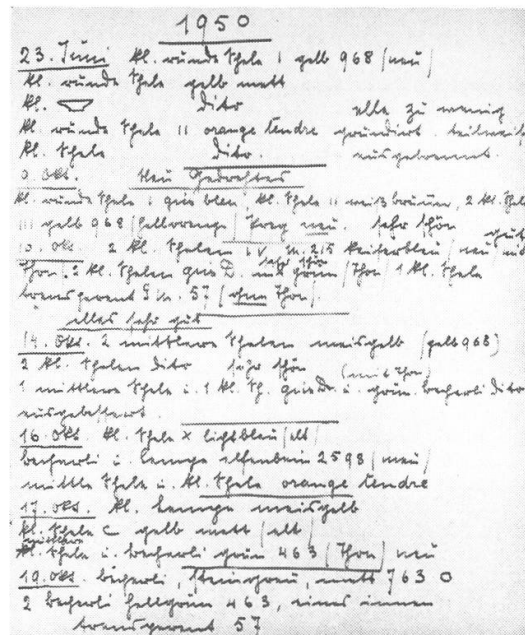 1950
23. Juni kl. runde Schale I gelb 968 / neu /
kl. runde Schale gelb matt
kl. dito alle zu wenig
kl. runde Schale II orange tendre grundirt. teilweise
kl. Schale dito. ausgebrannt.
9. Okt. Neu Gedrehtes
kl. runde Schale I gris bleu, kl. Schale II weiß braun, 2 kl. Schal
III gelb 968 / hellorange / neu. sehr schön gut
10. Okt. 2 kl. Schalen IV 215 / neu / mit
Thon / 2 kl. Schalen gris D. grün / Thon / 1 kl. Schale sehr schön
transparent 57 / ohne Thon /
alles sehr gut
14. Okt. 2 mittlere Schalen maisgelb (gelb 968)
2 kl. Schalen dito sehr schön (mit Thon)
1 mittlere Schale u. 1 kl. Sch. gris u. grün. becherli dito
ausgebessert.
16. Okt. kl. Schale x lichtblau / alt /
becherli u. elfenbein 2598 / neu /
mittle Schale u. kl. Schale orange tendre
17. Okt. kl. maisgelb
kl. Schale C gelb matt / alt /
mittlere
kl. Schale u. becherli grün 463 / Thon / neu
19. Okt. becherli, Steingrau, matt 7630
2 becherli hellgrün 463, eines innen
transparent 57